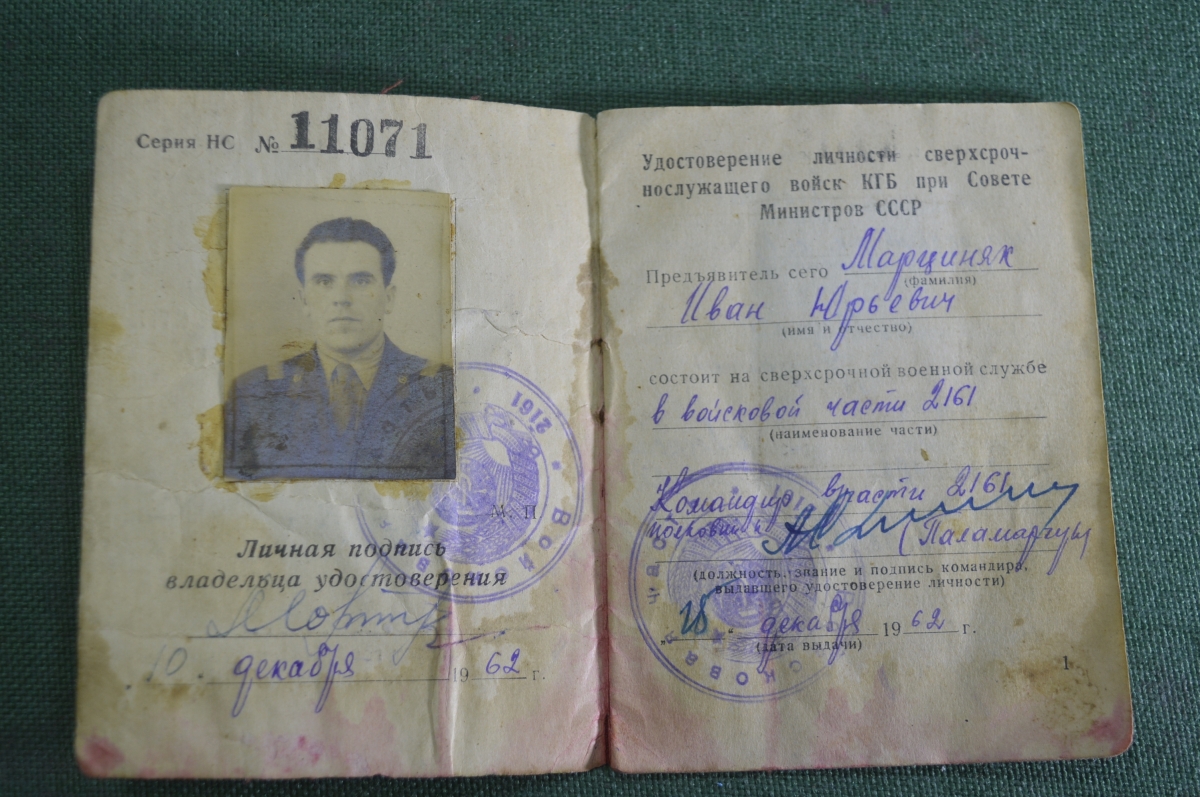 Серия НС № 11071
М. П.
Личная подпись
владельца удостоверения
10. декабря 1962 г.
Удостоверение личности сверхсроч-
нослужащего войск КГБ при Совете
Министров СССР
Предъявитель сего Марциняк
(фамилия)
Иван Юрьевич
(имя и отчество)
состоит на сверхсрочной военной службе
в войсковой части 2161
(наименование части)
Командир в части 2161
полковник (Паламарчук)
(должность, звание и подпись командира,
выдавшего удостоверение личности)
декабря 1962 г.
(дата выдачи)
1